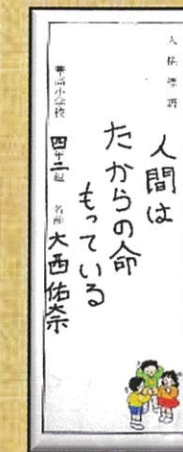 人権標語
人間は
たからの命
もっている
華高小学校 四年二組 名前 大西佑奈